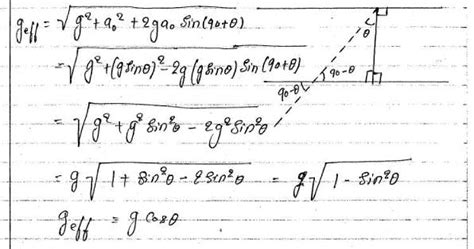 g_eff = √(g² + a₀² + 2ga₀ sin(90+θ))
= √(g² + (g sinθ)² - 2g(g sinθ) sin(90+θ))
= √(g² + g² sin²θ - 2g² sin²θ)
= g√(1 + sin²θ - 2sin²θ) = g√(1 - sin²θ)
g_eff = g cosθ
θ
90-θ
90-θ